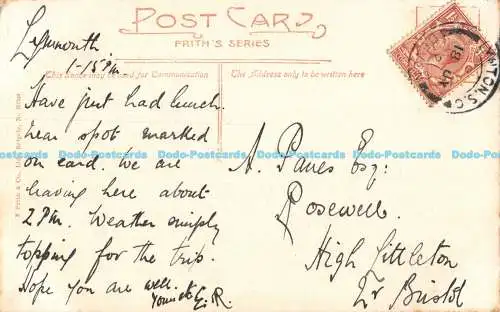 POST CARD
FRITH'S SERIES
This Space may be used for Communication
The Address only to be written here
Lynmouth
1-15 PM
Have just had lunch
near spot marked
on card. We are
leaving here about
2 PM. Weather simply
topping for the trip.
Hope you are well.
Yours G. R.
A. Panes Esq:
Rosewell.
High Littleton
Nr Bristol
Dodo-Postcards Dodo-Postcards Dodo-Postcards Dodo-Postcards Dodo-Postcards